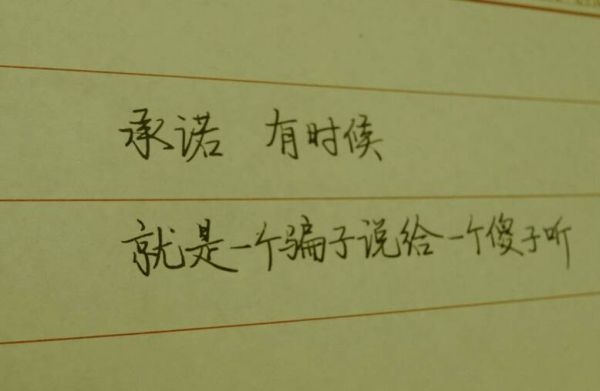 承诺 有时候
就是一个骗子说给一个傻子听